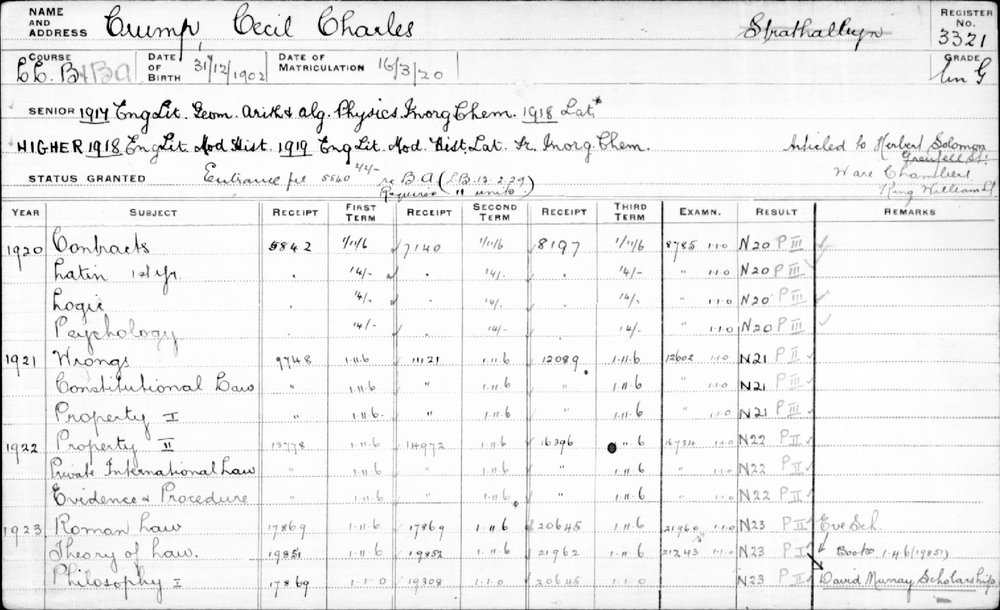 NAME AND ADDRESS Crump, Cecil Charles Strathalbyn REGISTER NO. 3321
COURSE LL.B + BA DATE OF BIRTH 31/12/1902 DATE OF MATRICULATION 16/3/20 GRADE
SENIOR 1917 Eng Lit. Geom. Arith & Alg. Physics. Inorg Chem. 1918 Lat.
HIGHER 1918 Eng Lit. Mod Hist. 1919 Eng Lit. Mod. Hist, Lat. Fr. Inorg Chem. Articled to Herbert Solomon
Grenfell St.
STATUS GRANTED Entrance fee 5840 re B.A. (L.B. 13.2.29. Ware Chambers
Requires 11 units.) King William St.
YEAR SUBJECT RECEIPT FIRST TERM RECEIPT SECOND TERM RECEIPT THIRD TERM EXAMN. RESULT REMARKS
1920 Contracts 5842 1/11/6 7140 1/11/6 8197 1/11/6 8785 1·1·0 N20 P III
Latin 1st Yr. . 14/- . 14/- . 14/- " 1·1·0 N20 P III
Logic . 14/- . 14/- . 14/- " 1·1·0 N20 P III
Psychology . 14/- . 14/- . 14/- " 1·1·0 N20 P III
1921 Wrongs 9748 1·11·6 11121 1·11·6 12089 1·11·6 12602 1·1·0 N21 P II
Constitutional Law " 1·11·6 " 1·11·6 " 1·11·6 " 1·1·0 N21 P II
Property I " 1·11·6 " 1·11·6 " 1·11·6 " 1·1·0 N21 P II
1922 Property II 13778 1·11·6 14972 1·11·6 16396 " 6 16734 1·1·0 N22 P II
Private International Law " 1·11·6 " 1·11·6 " 1·11·6 " 1·1·0 N22 P II
Evidence & Procedure " 1·11·6 " 1·11·6 " 1·11·6 " 1·1·0 N22 P II
1923 Roman Law 17869 1·11·6 17869 1·11·6 20645 1·11·6 21960 1·1·0 N23 P II Eve Sch.
Theory of Law. 19851 1·11·6 19852 1·11·6 21962 1·11·6 21243 1·1·0 N23 P I 1·11·6 (19851)
Philosophy I 17869 1·1·0 19308 1·1·0 20645 1·1·0 N23 P II David Murray Scholarship.